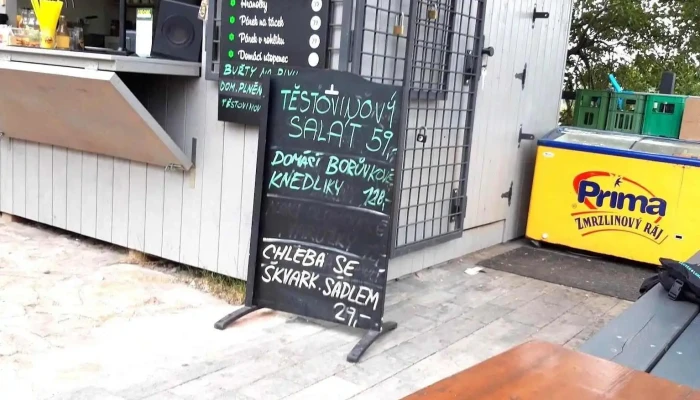 Hranolky
Párek na tácek
Párek v rohlíku
Domácí utopenec
BUŘTY NA PIVU
DOM. PLNĚN
TĚSTOVINOV
TĚSTOVINOVÝ
SALÁT 59,-
DOMÁŠÍ BORŮVKOVÉ
KNEDLIKY 128,-
CHLEBA SE
ŠKVARK. SÁDLEM
29,-
Prima
ZMRZLINOVÝ RÁJ